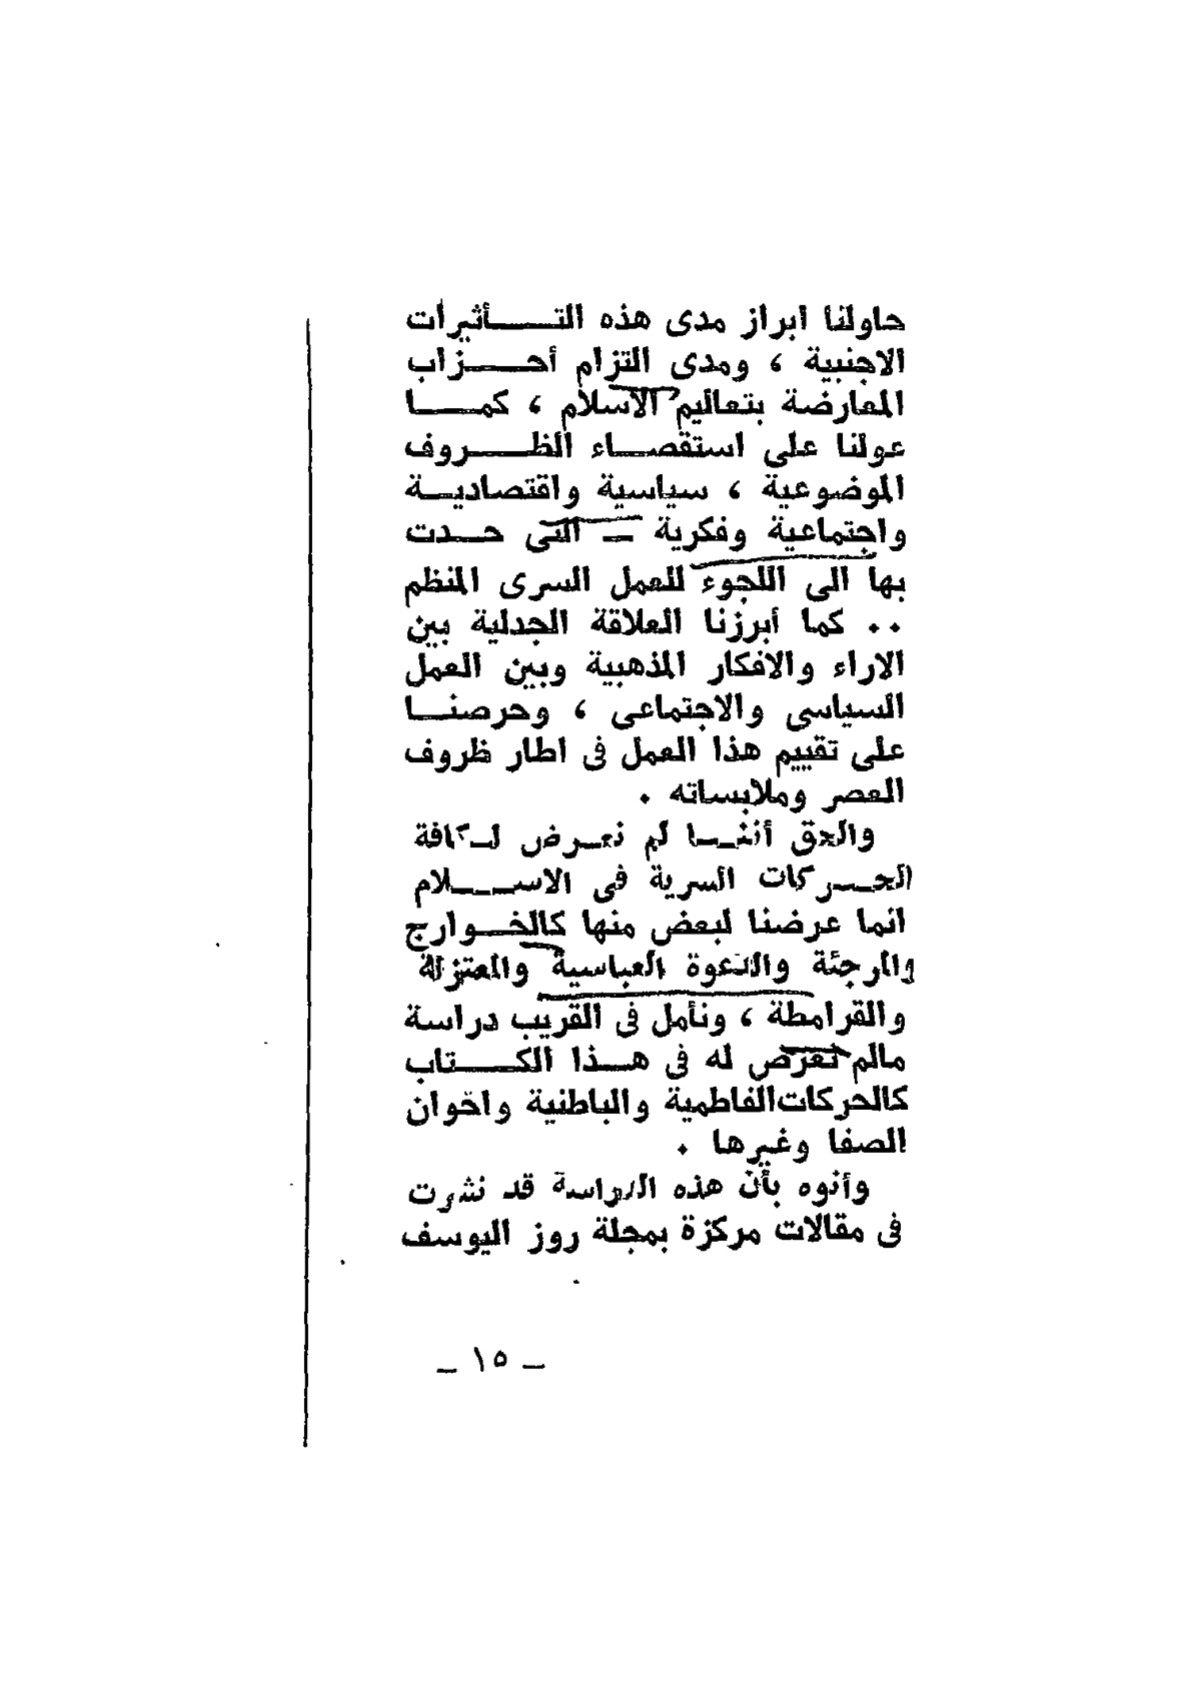 حاولنا ابراز مدى هذه التـــــأثيرات
الاجنبية ، ومدى التزام أحـــزاب
المعارضة بتعاليم الاسلام ، كمــــا
عولنا على استقصــاء الظــــروف
الموضوعية ، سياسية واقتصاديــة
واجتماعية وفكرية ــ التى حــدت
بها الى اللجوء للعمل السرى المنظم
.. كما أبرزنا العلاقة الجدلية بين
الاراء والافكار المذهبية وبين العمل
السياسى والاجتماعى ، وحرصنــا
على تقييم هذا العمل فى اطار ظروف
العصر وملابساته .
والحق أننــا لم نعــرض لــكافة
الحــركات السرية فى الاســـلام
انما عرضنا لبعض منها كالخــوارج
والمرجئة والدعوة العباسية والمعتزلة
والقرامطة ، ونأمل فى القريب دراسة
مالم نعرض له فى هــذا الكـــتاب
كالحركات الفاطمية والباطنية واخوان
الصفا وغيرها .
وأنوه بأن هذه الدراسة قد نشرت
فى مقالات مركزة بمجلة روز اليوسف
ــ ١٥ ــ